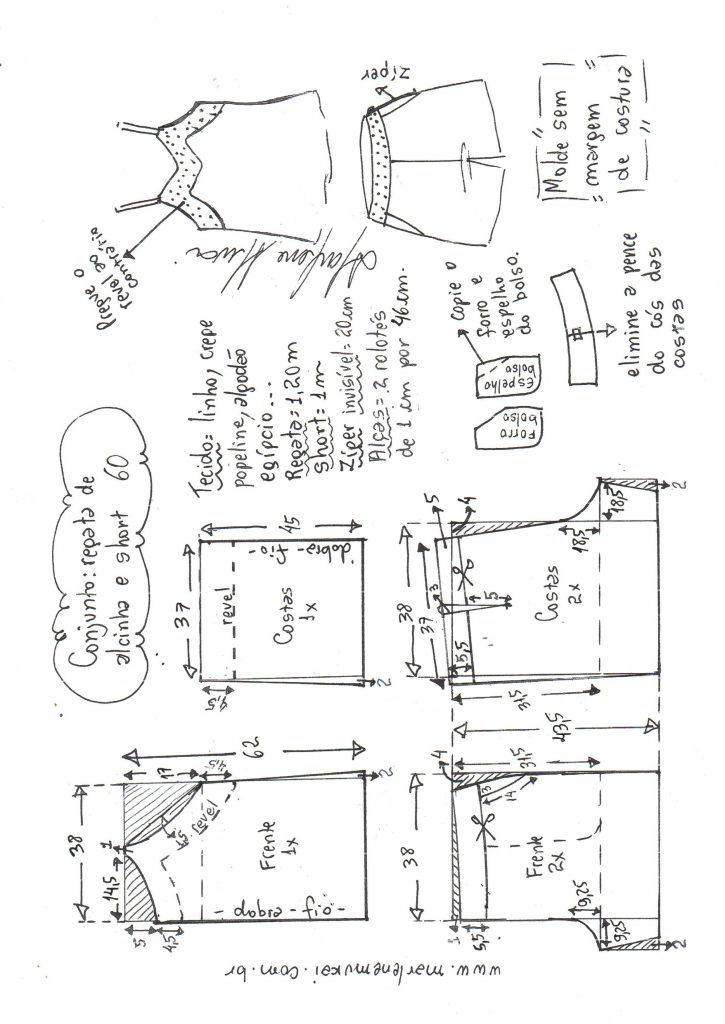 Conjunto: regata de
alcinha e short 60
Tecido= linho, crepe
popeline, algodão
egípcio...
Regata= 1,20m
Short= 1m
Zíper invisível= 20cm
Alças= 2 rolotés
de 1cm por 46cm.
Pregue o
revel ao
contrário
Zíper
"Molde sem
= margem =
de costura"
copie o
forro e
espelho
do bolso.
Espelho
bolso
Forro
bolso
elimine a pence
do cós das
costas
38
14,5
1
17
4,5
62
5
4,5
1,5
revel
Frente
1x
dobra-fio
2
37
45
4,5
revel
Costas
1x
dobra-fio
2
38
4
31,5
43,5
1
5,5
3
14
Frente
2x
9,25
9,25
2
38
37
5
4
3
5
5,5
31,5
Costas
2x
18,5
18,5
2
www.marlenemukai.com.br
Marlene Mukai